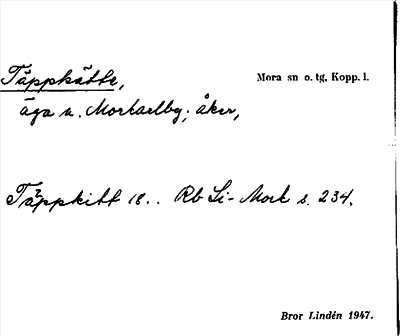 Täppkätte,
Mora sn o. tg, Kopp. l.
äga u. Morkarlby; åker,
Täppkitt 18.. Rb Si-Mork s. 234.
Bror Lindén 1947.